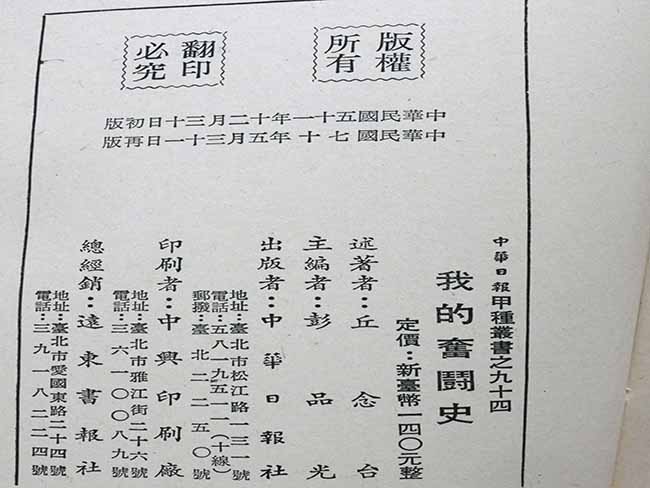 版權
所有
翻印
必究
中華民國五十一年十二月三十日初版
中華民國七十年五月三十一日再版
中華日報甲種叢書之九十四
我的奮鬪史
定價：新臺幣一四○元整
述著者：丘念台
主編者：彭品光
出版者：中華日報社
地址：臺北市松江路一三一號
電話：五八一九五一一(十線)
郵撥：臺北二二五○號
印刷者：中興印刷廠
地址：臺北市雅江街二十六號
電話：三六一○○八九號
總經銷：遠東書報社
地址：臺北市愛國東路二十四號
電話：三九一八二二四號